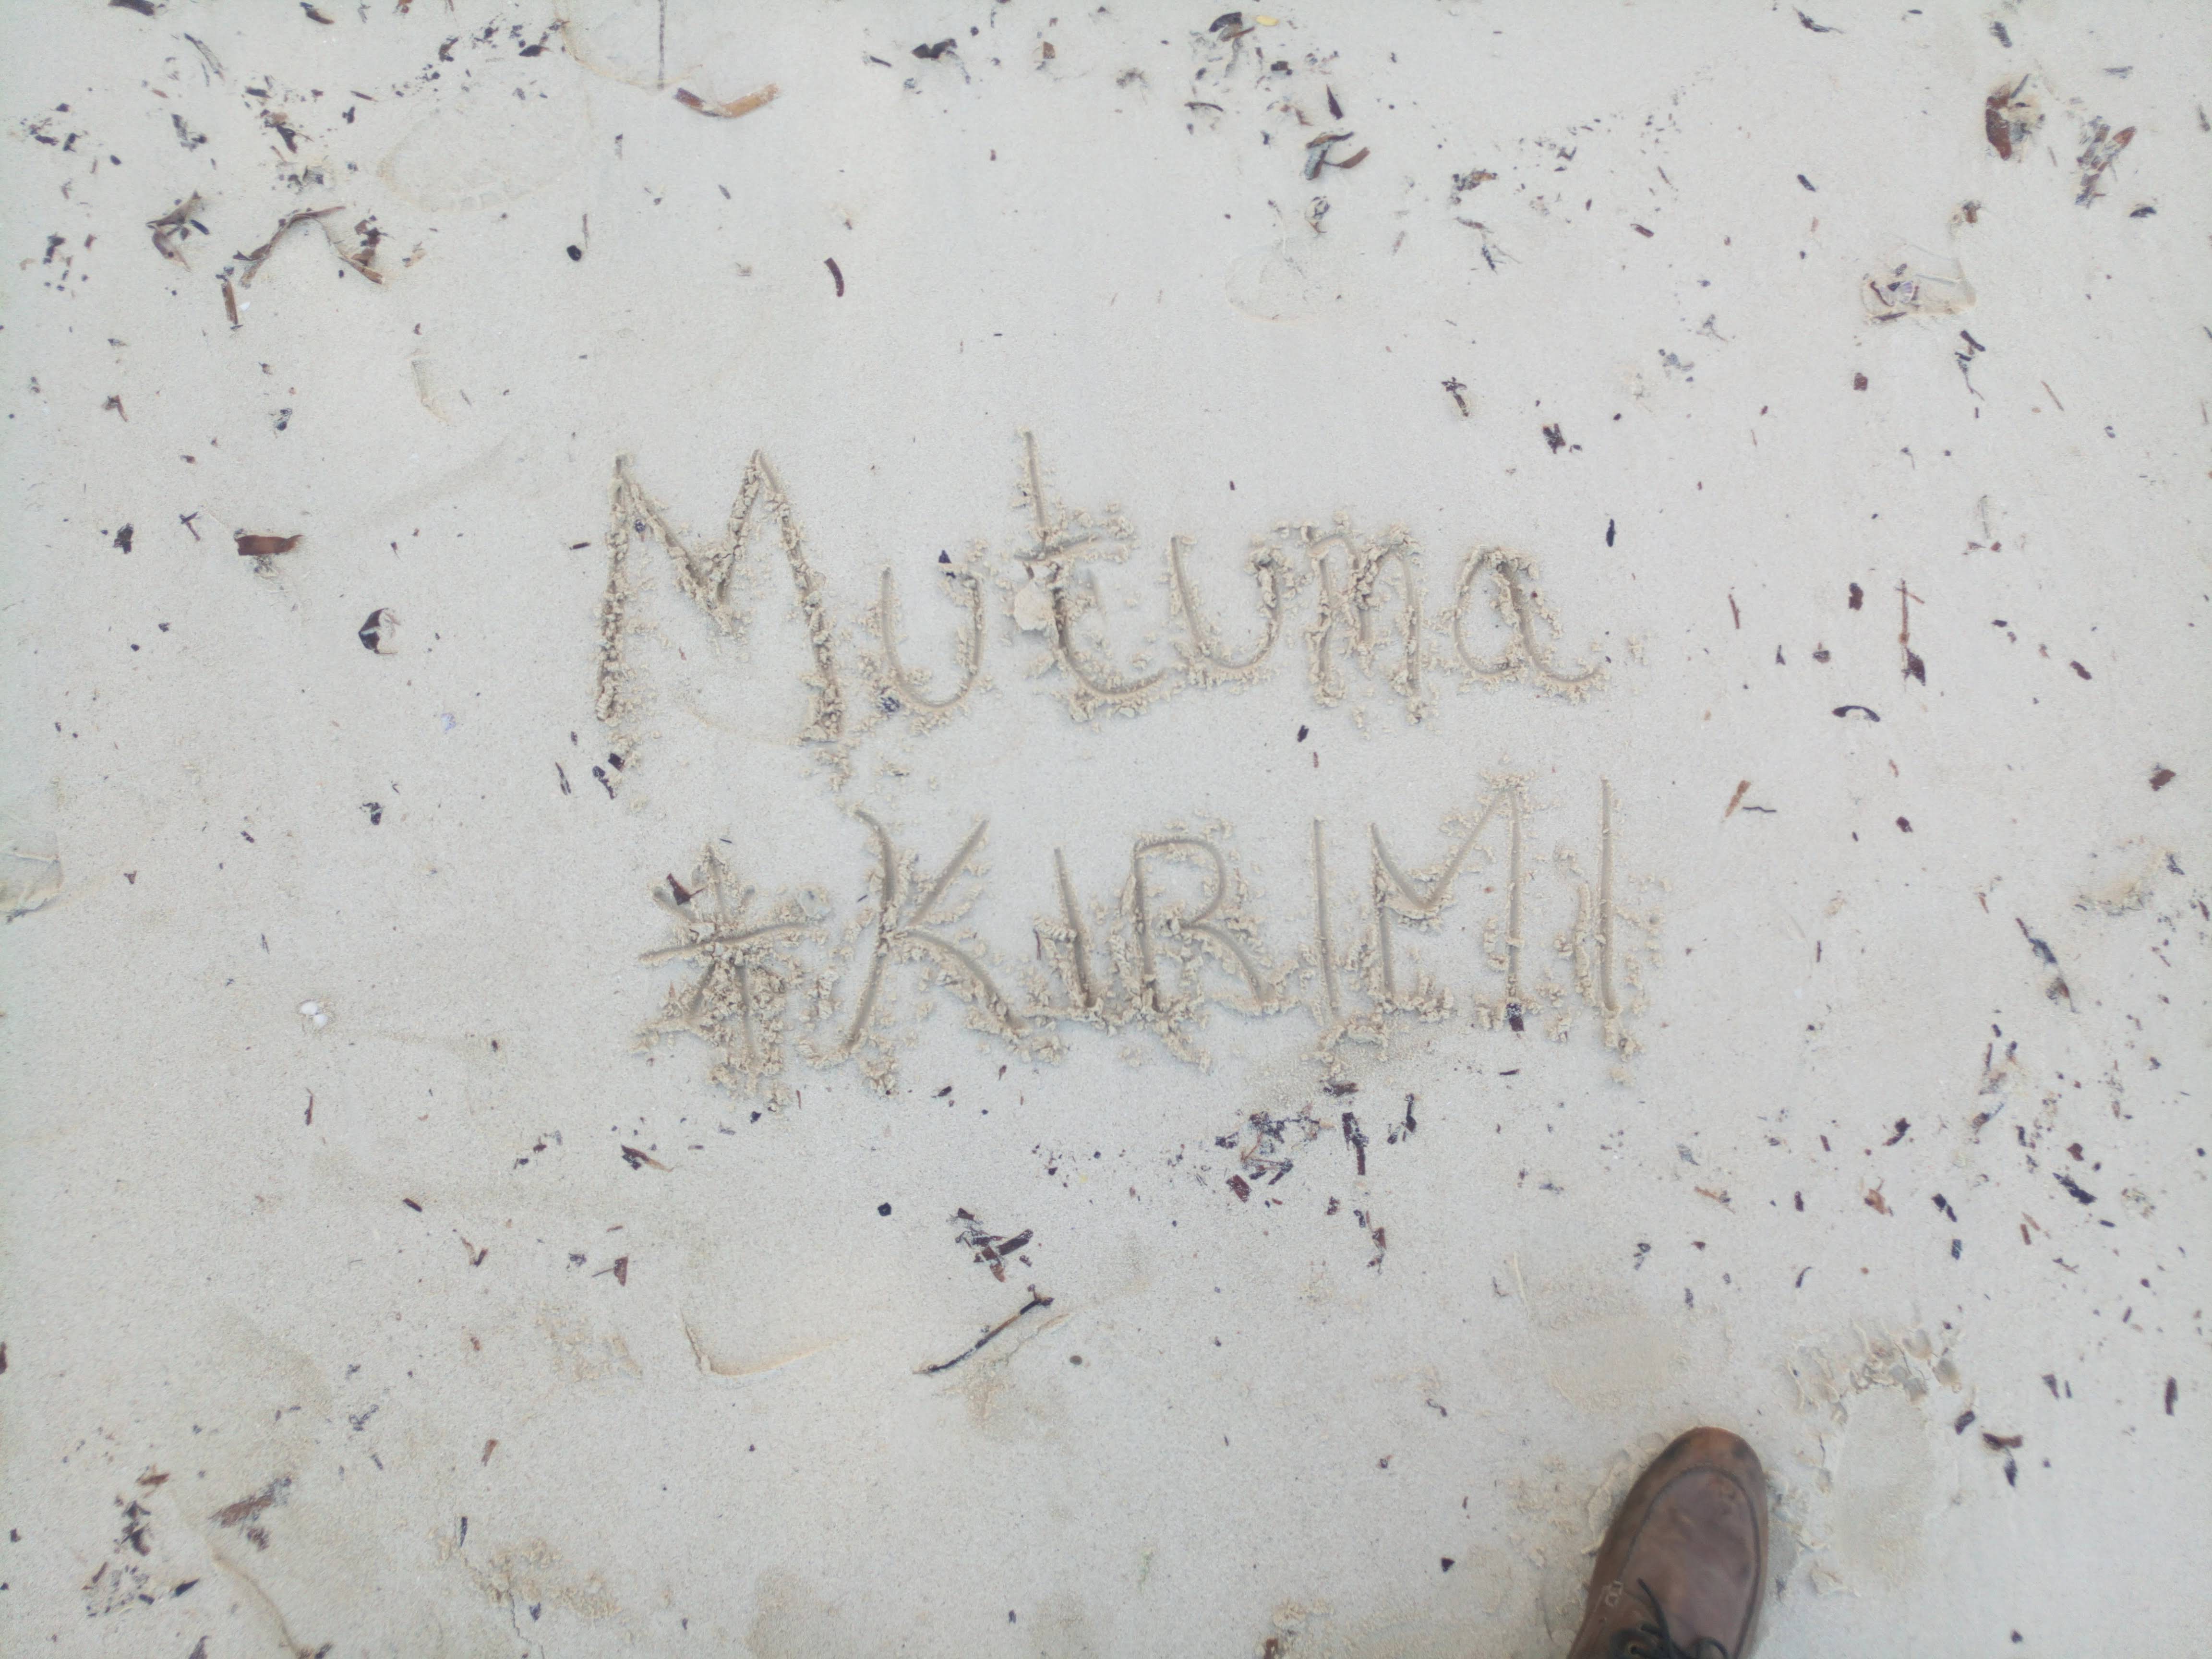 Mutuma
*KiRIMI